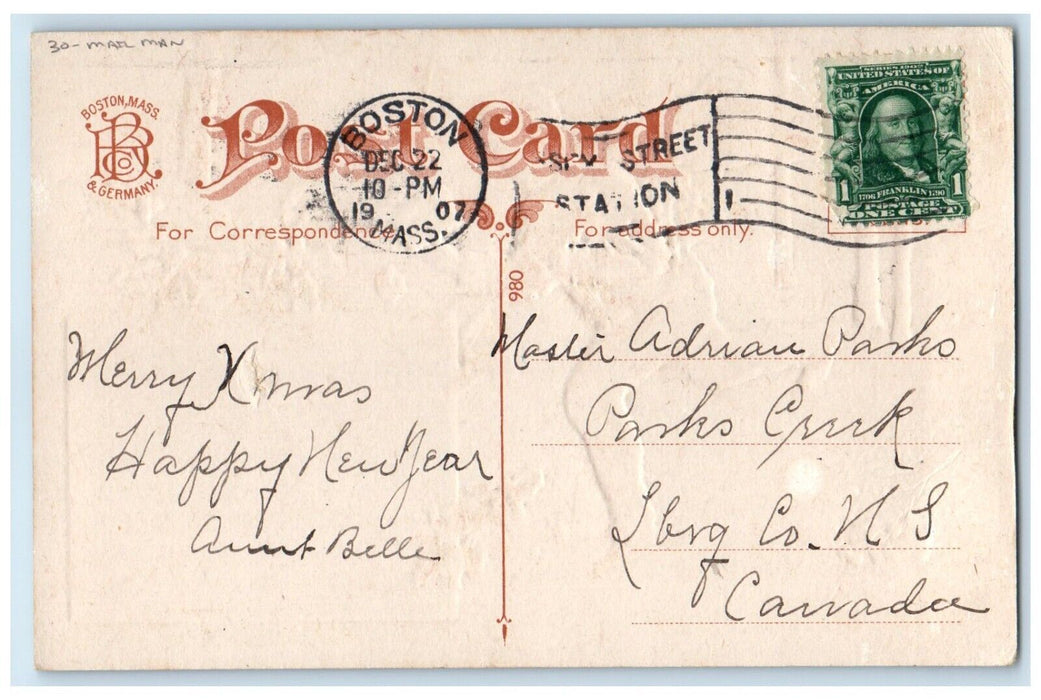 30- MAIL MAN
BOSTON, MASS.
& GERMANY.
Post Card
BOSTON
DEC 22
10-PM
19 07
MASS.
STREET
STATION
1
SERIES 1902
UNITED STATES OF
AMERICA
1706 FRANKLIN 1790
1 POSTAGE 1
ONE CENT
For Correspondence.
For address only.
980
Merry Xmas
Happy New Year
Aunt Belle
Master Adrian Parks
Parks Creek
Lbrg Co. N S
Canada